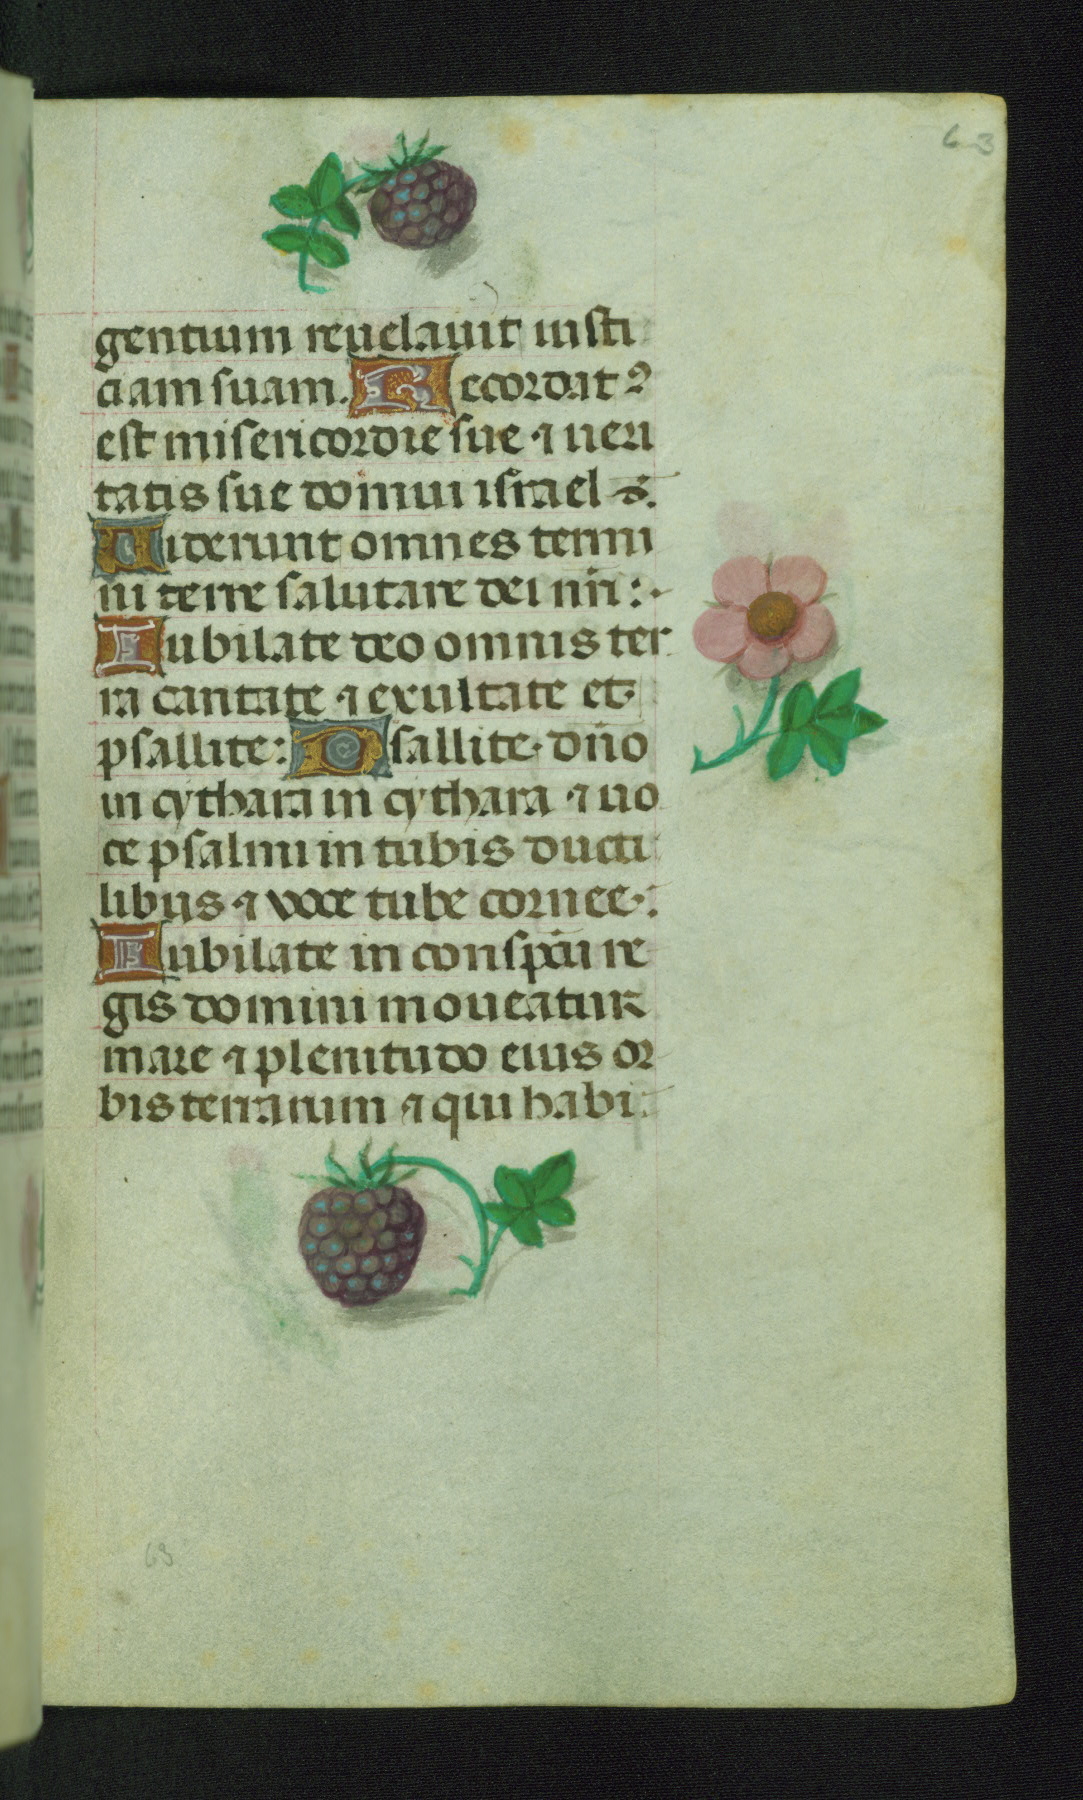 63
gentium reuelauit iusti
ciam suam. Recordatꝰ
est misericordie sue ⁊ ueri
tatis sue domui israel
Uiderunt omnes termi
ni terre salutare dei nr̄i:
Iubilate deo omnis ter
ra cantate ⁊ exultate et
psallite: Psallite. dn̄o
in cythara in cythara ⁊ uo
ce psalmi in tubis ducti
libus ⁊ voce tube cornee.
Iubilate in conspc̄tu re
gis domini moueatur
mare ⁊ plenitudo eius or
bis terrarum ⁊ qui habi
63